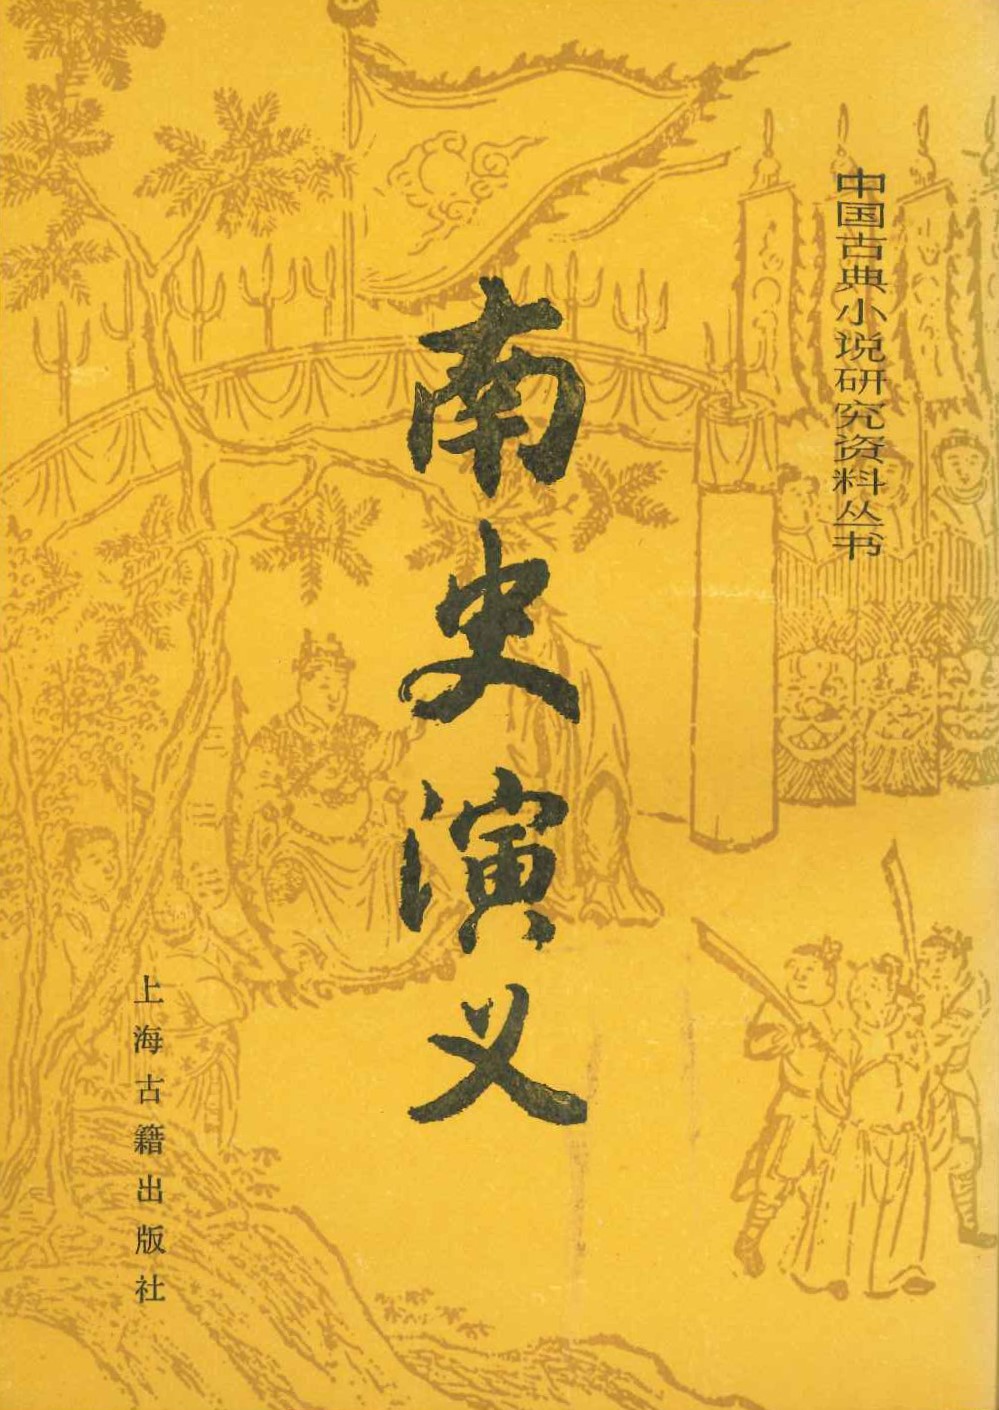 中国古典小说研究资料丛书
南史演义
上海古籍出版社